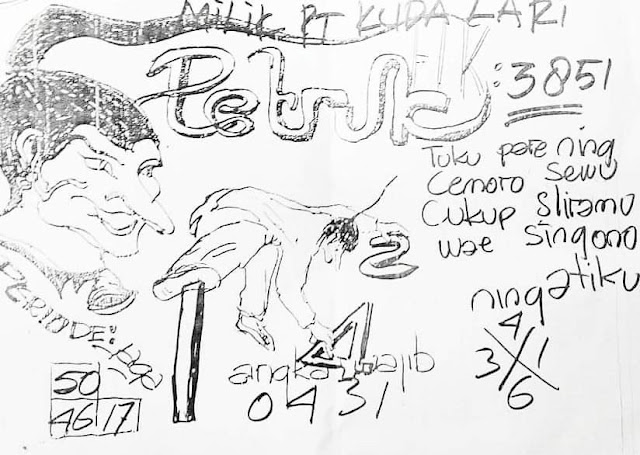 MILIK PT KUDA LARI
Petruk : 3851
Tuku pare ning
Cemoro sewu
Cukup sliramu
wae singono
ning atiku
2
4
PERIODE:
angka wajib
0 4 3 1
50
46 17
4
3 1
6